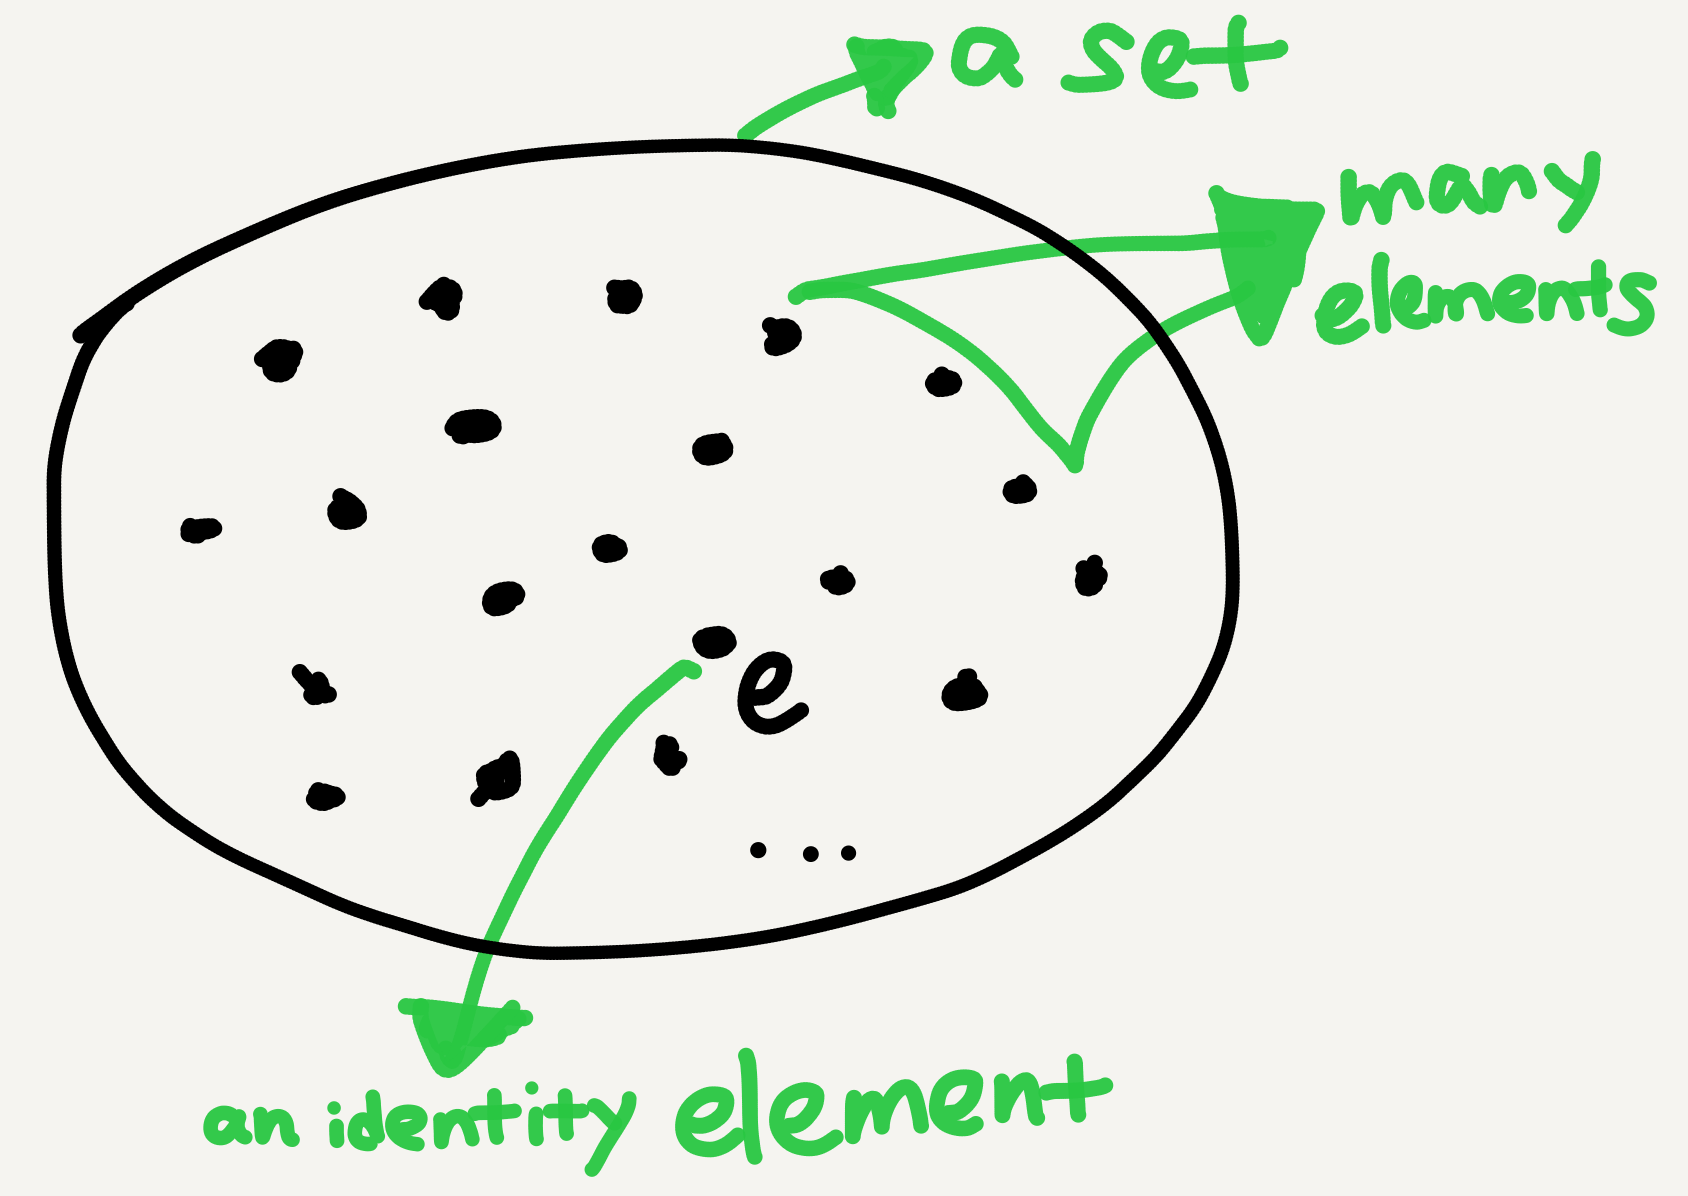 a set
many
elements
e
...
an identity element